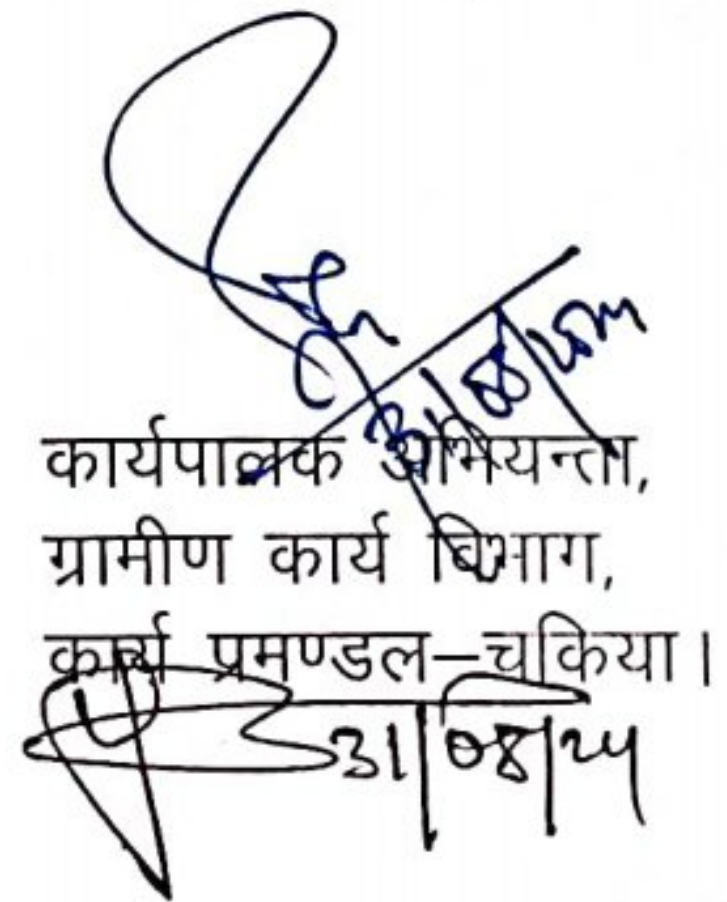 31/08/2024
कार्यपालक अभियन्ता,
ग्रामीण कार्य विभाग,
कार्य प्रमण्डल–चकिया।
31/08/24